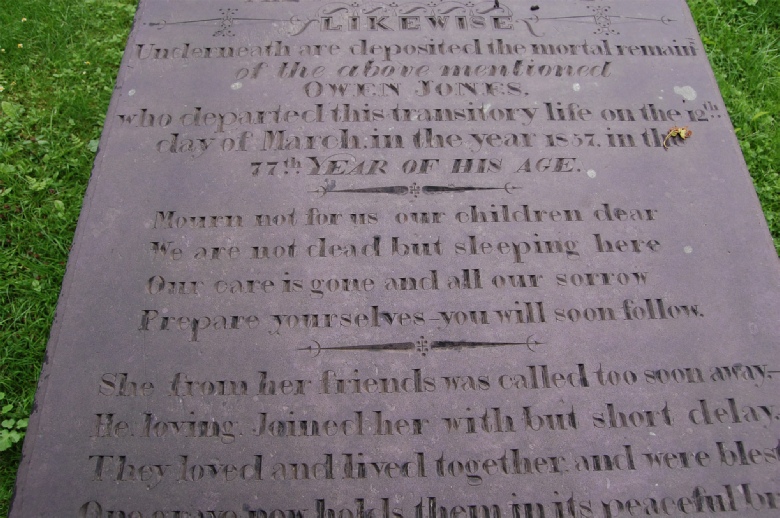 LIKEWISE
Underneath are deposited the mortal remain
of the above mentioned
OWEN JONES.
who departed this transitory life on the 12th
day of March, in the year 1857, in the
77th YEAR OF HIS AGE.
Mourn not for us our children dear
We are not dead but sleeping here
Our care is gone and all our sorrow
Prepare yourselves you will soon follow.
She from her friends was called too soon away,
He, loving, Joined her with but short delay
They loved and lived together and were blest
One grave now holds them in its peaceful